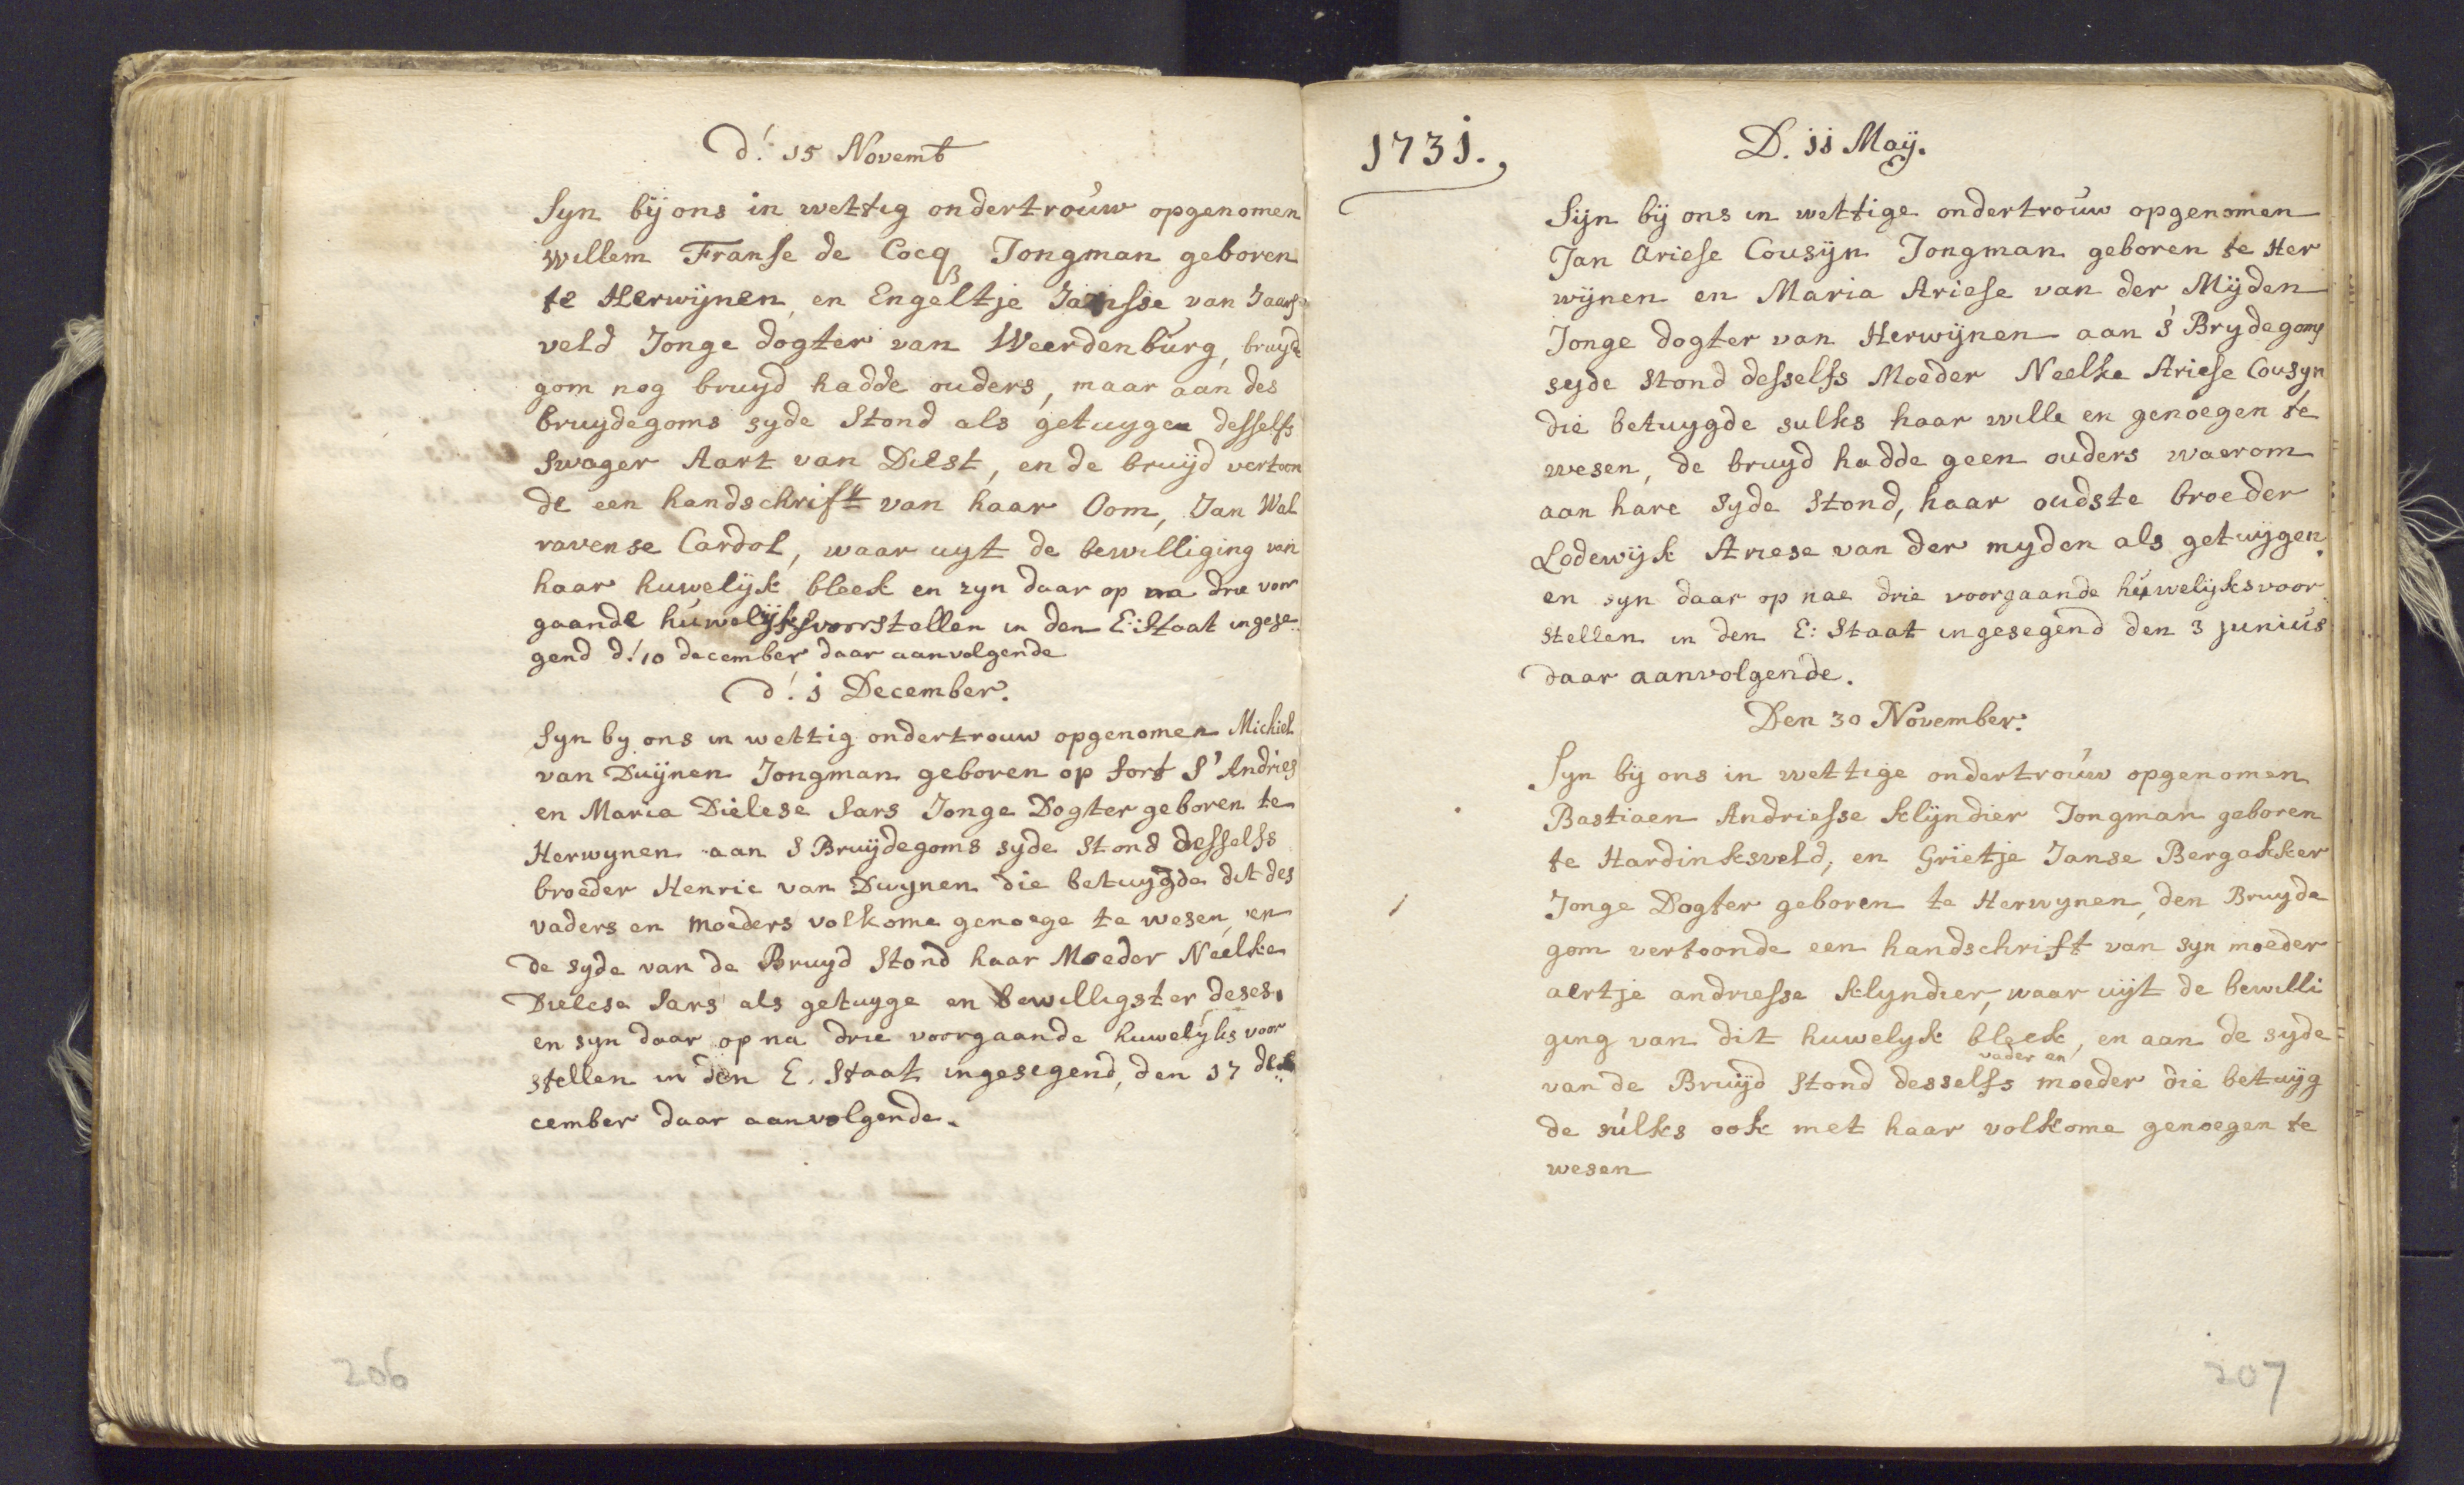 d: 15 Novemb
Syn bij ons in wettig ondertrouw opgenomen
Willem Franse de Cocq Jongman geboren
te Herwijnen, en Engeltje Jansse van Jaars
veld Jonge dogter van Weerdenburg, bruyde
gom nog bruyd hadde ouders, maar aan des
bruydegoms syde stond als getuygen desselfs
Swager Aart van Diest, en de bruijd vertoon
de een handschrift van haar Oom, Jan Wal
ravense Cardol, waar uyt de bewilliging van
haar huwelijk bleek en zyn daar op na drie voor
gaande huwelijksvoorstellen in den E: Staat ingese
gend d: 10 december daar aanvolgende
d: 1 December.
Syn by ons in wettig ondertrouw opgenomen Michiel
van Duijnen Jongman geboren op fort S' Andries
en Maria Dielese Sars Jonge Dogter geboren te
Herwynen aan S Bruijdegoms syde stond desselfs
broeder Henric van Duynen die betuygde dit des
vaders en moeders volkome genoege te wesen, en
de syde van de Bruyd stond haar Moeder Neelke
Dielese Sars als getuyge en bewilligster deses,
en syn daar op na drie voorgaande huwelyks voor
stellen in den E. Staat ingesegend, den 17 de
cember daar aanvolgende.
206
1731.
D. 11 Maij.
Sijn bij ons in wettige ondertrouw opgenomen
Jan Ariese Cousijn Jongman geboren te Her
wijnen en Maria Ariese van der Mijden
Jonge dogter van Herwijnen aan 's Brydegoms
syde stond desselfs Moeder Neelke Ariese Cousyn
die betuygde sulks haar wille en genoegen te
wesen, de bruyd hadde geen ouders waerom
aan hare syde stond, haar oudste broeder
Lodewijk Ariese van der myden als getuijgen,
en syn daar op nae drie voorgaande huwelijksvoor
stellen in den E: Staat ingesegend den 3 junius
daar aanvolgende.
Den 30 November.
Syn bij ons in wettige ondertrouw opgenomen
Bastiaen Andriesse Klijndier Jongman geboren
te Hardinksveld, en Grietje Janse Bergakker
Jonge Dogter geboren te Herwynen, den Bruyde
gom vertoonde een handschrift van syn moeder
aertje andriesse Klyndier, waar uijt de bewilli
ging van dit huwelyk bleek, en aan de syde
vader en
van de Bruijd stond desselfs moeder die betuijg
de sulks ook met haar volkome genoegen te
wesen
207